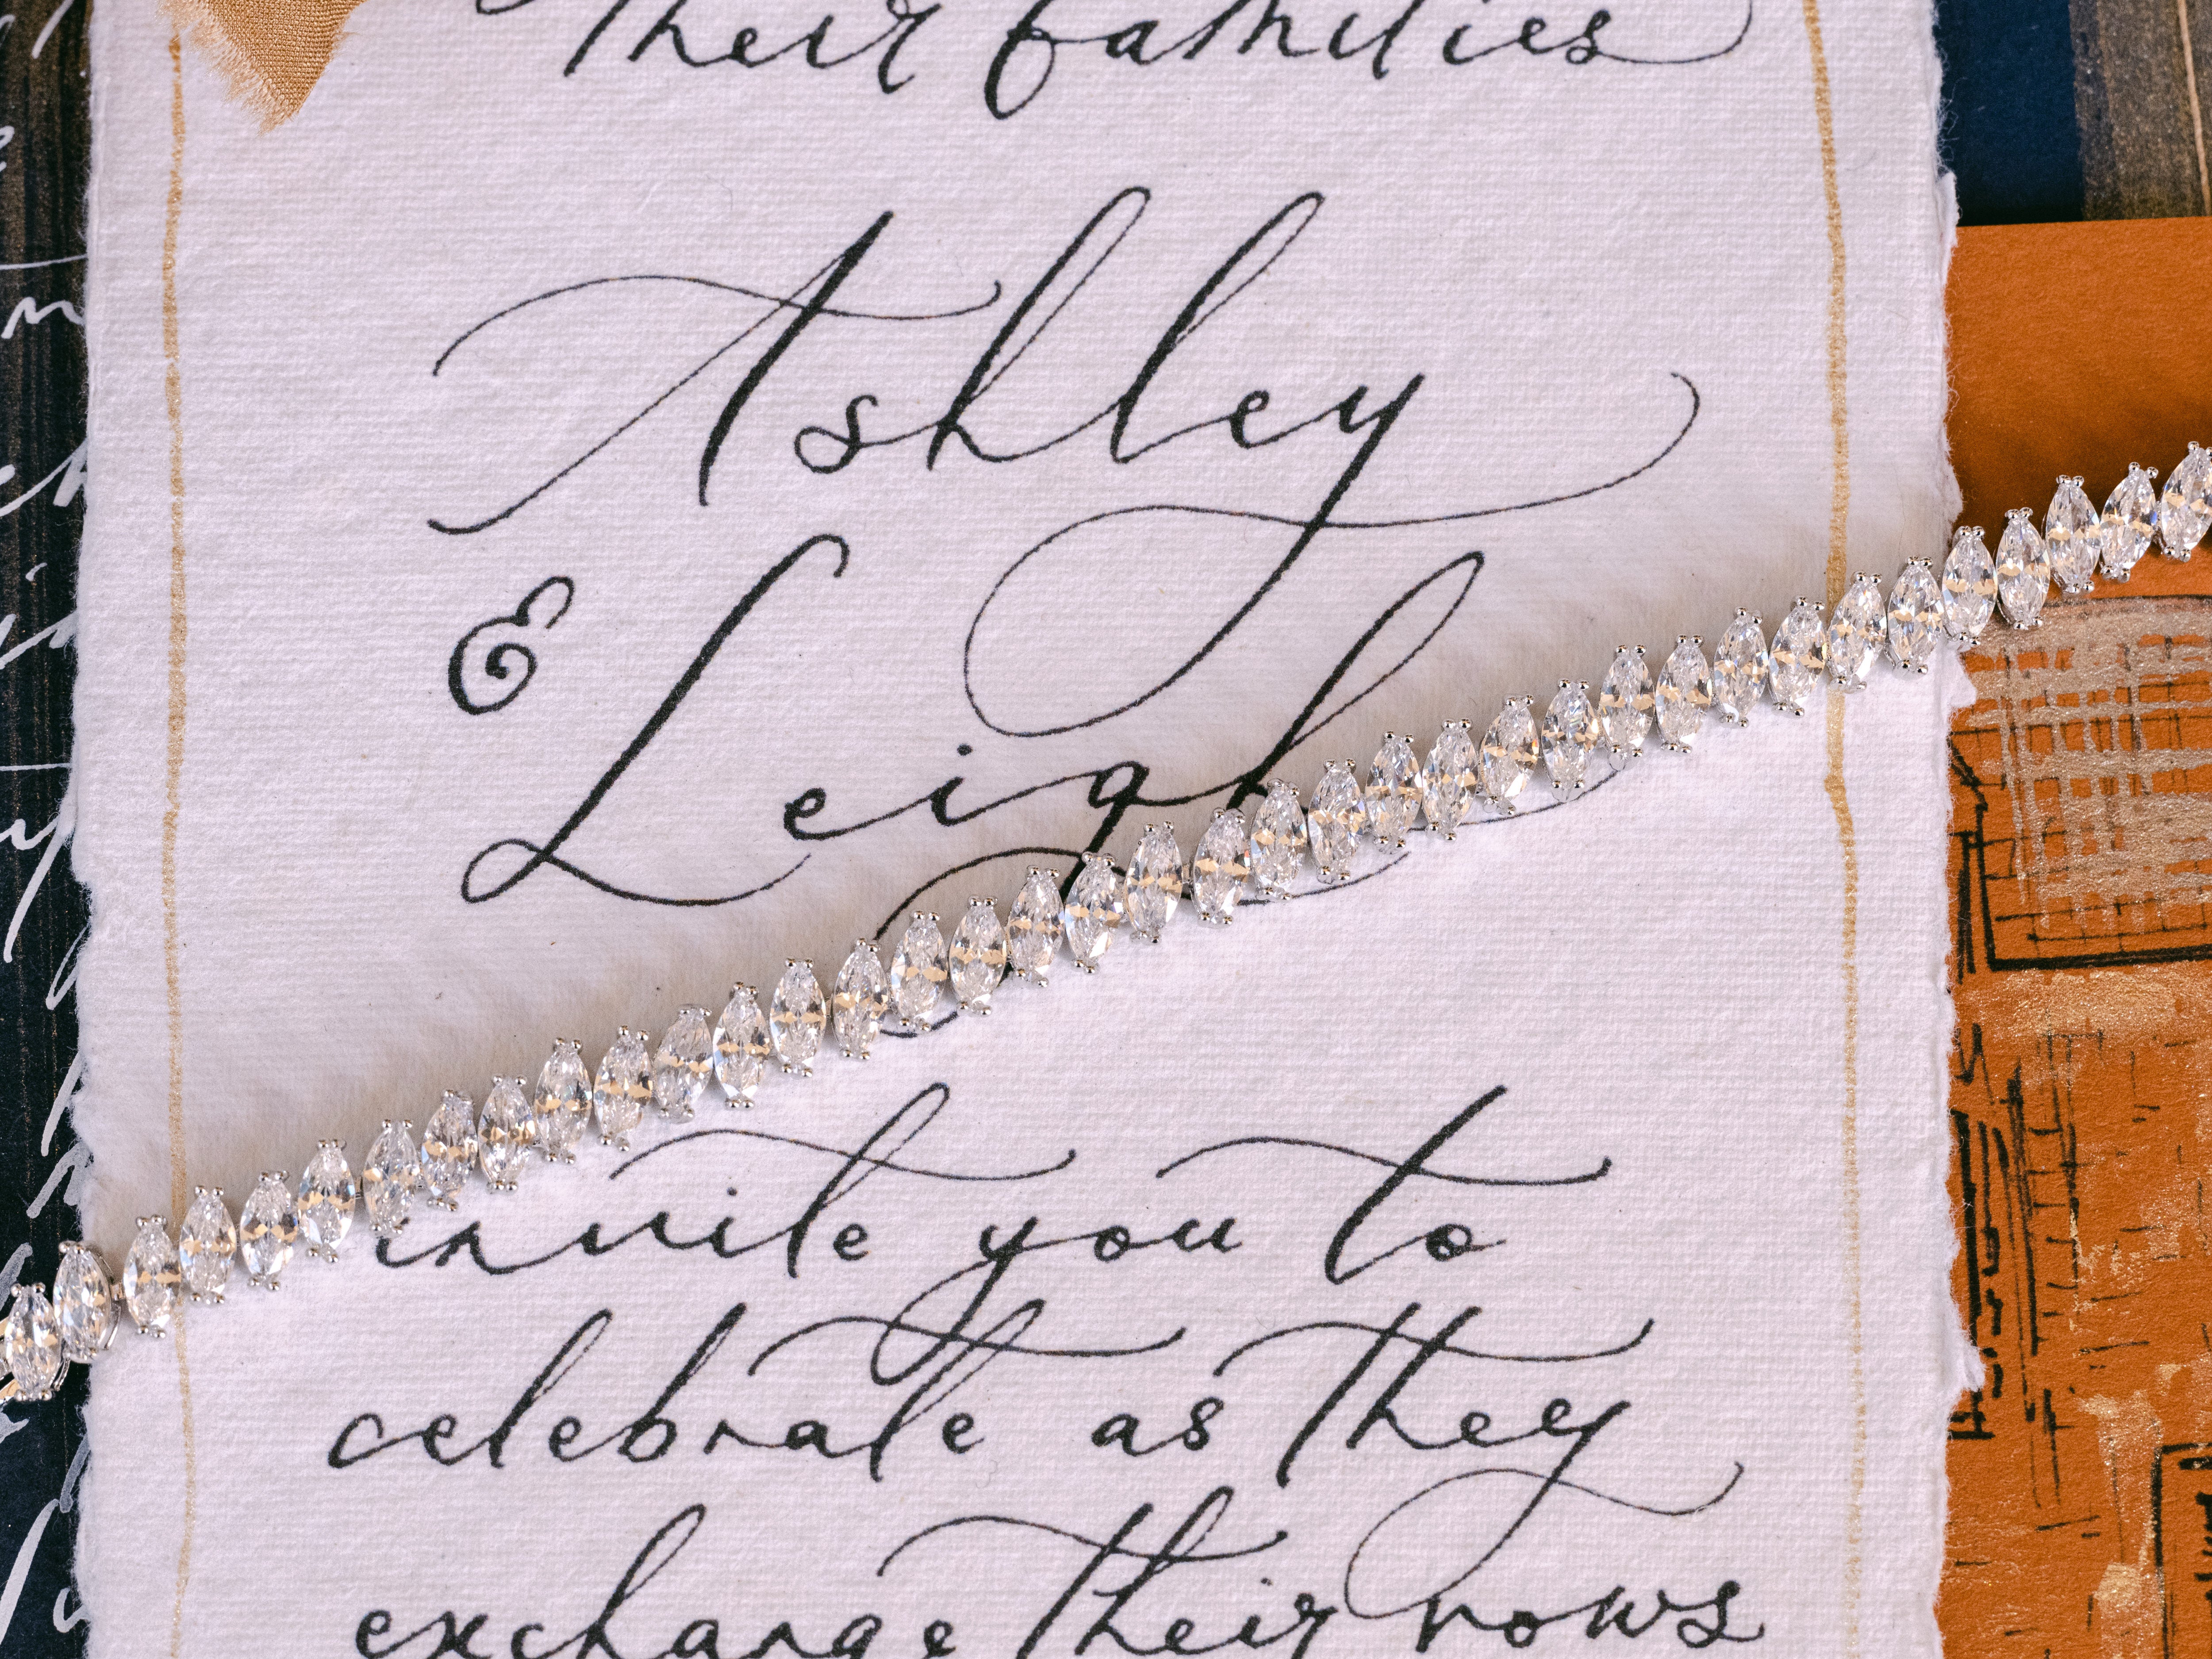 their families
Ashley
& Leigh
invite you to
celebrate as they
exchange their vows